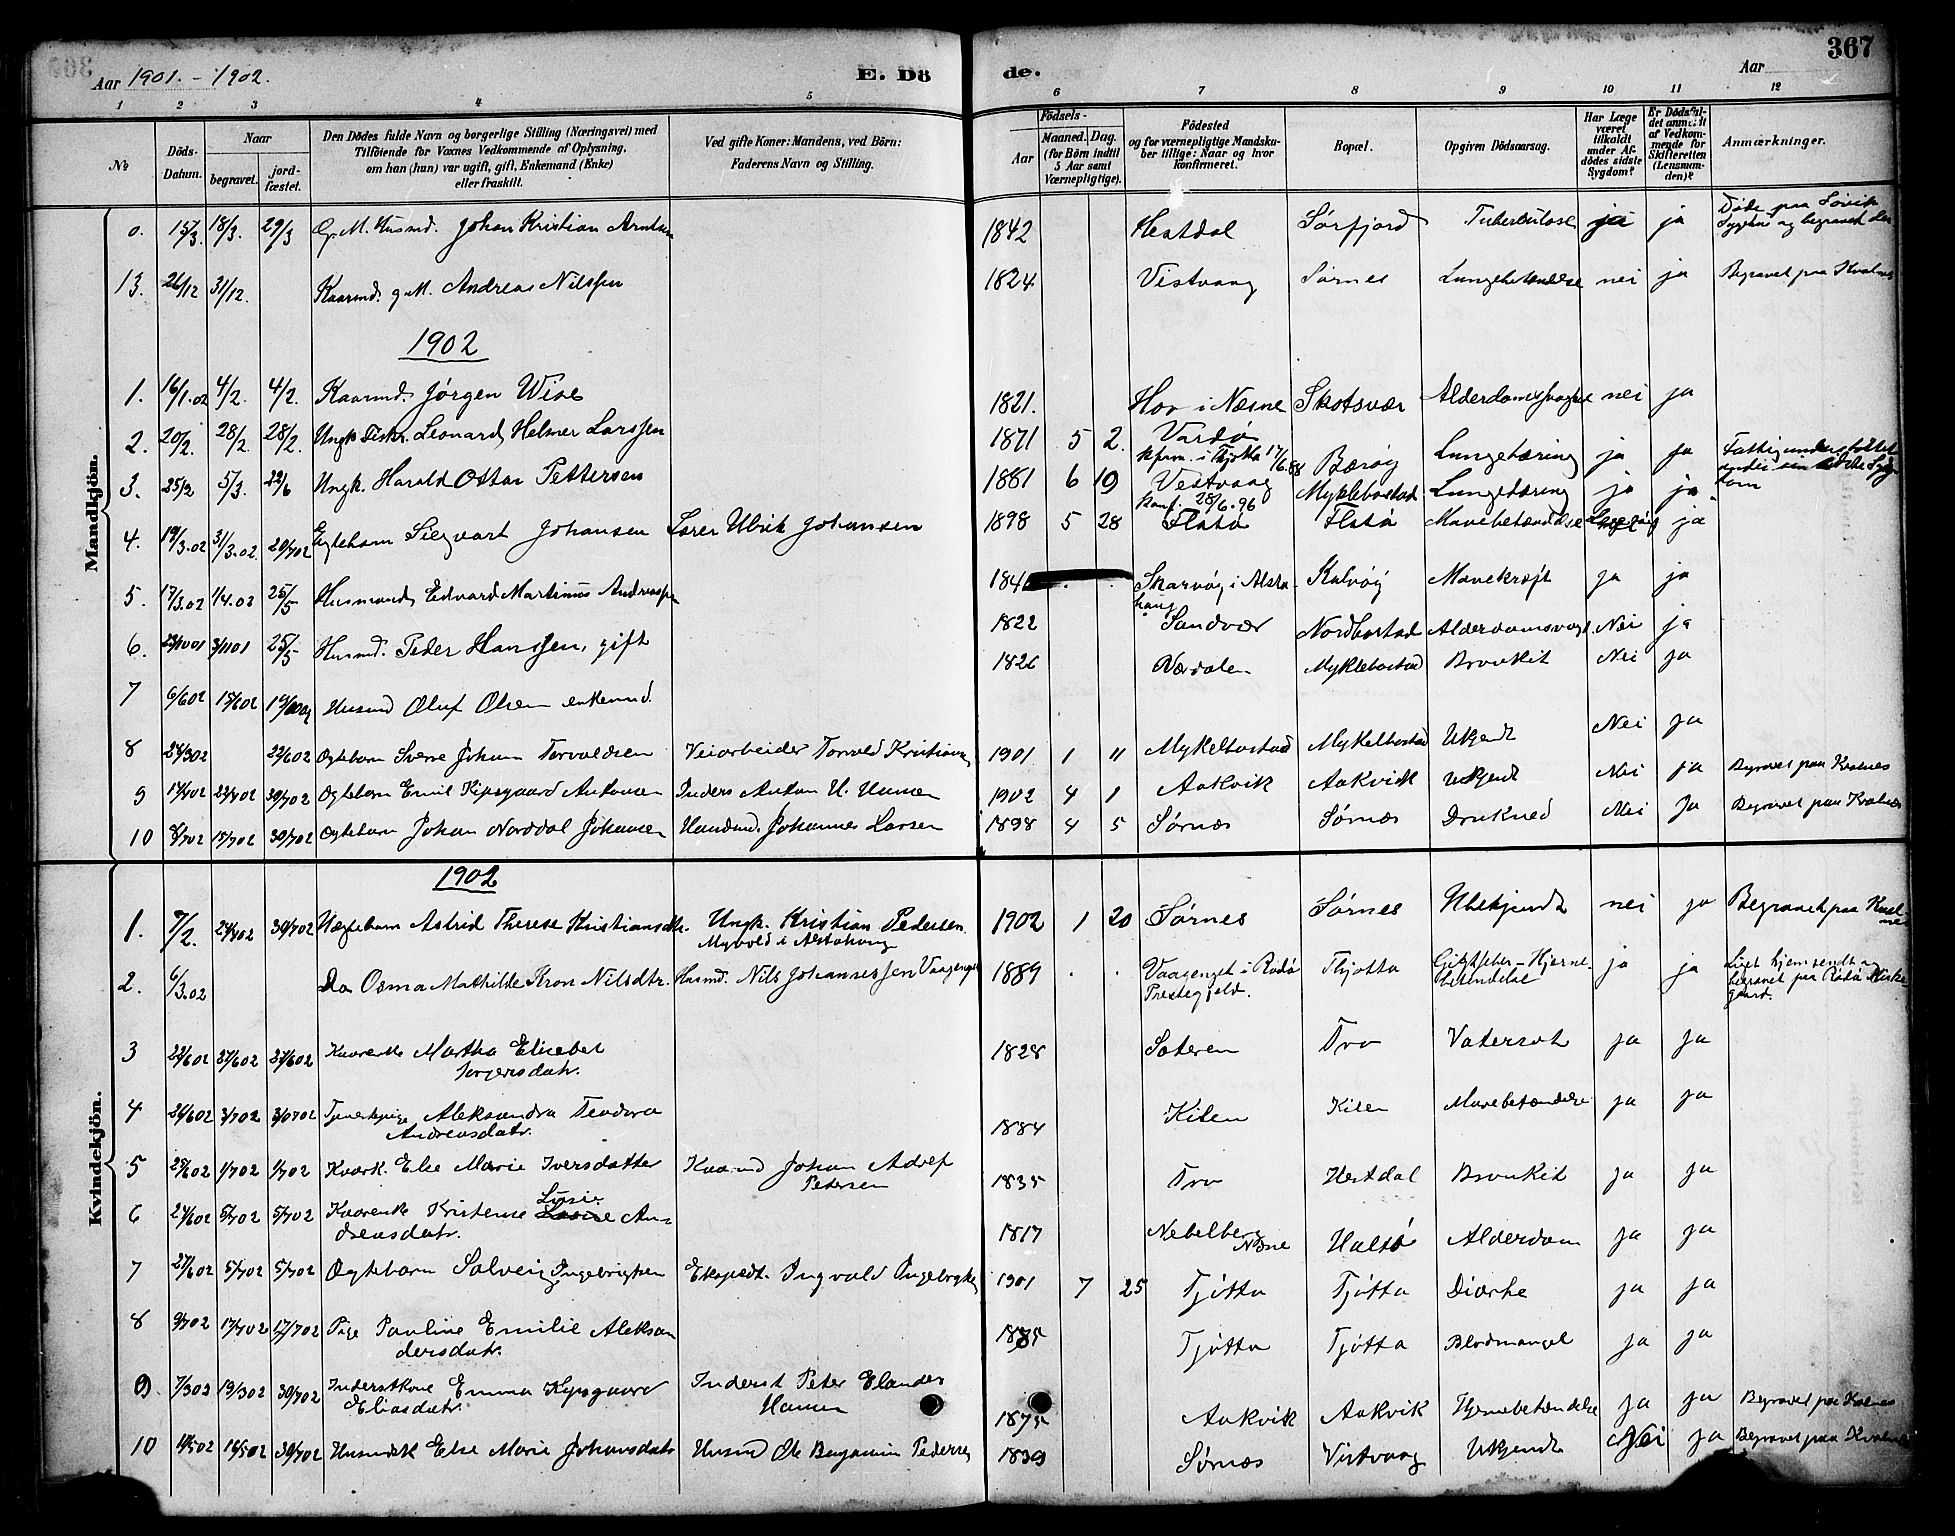 Aar 1901. - 1902.
E. Dö
de.
Aar
367
1 2 3 4 5 6 7 8 9 10 11 12
No
Döds-Datum.
Naar
begravet.
jord-fæstet.
Den Dödes fulde Navn og borgerlige Stilling (Næringsvei) med
Tilföiende for Voxnes Vedkommende af Oplysning,
om han (hun) var ugift, gift, Enkemand (Enke)
eller fraskilt.
Ved gifte Koner: Mandens, ved Börn:
Faderens Navn og Stilling.
Födsels-
Aar
Maaned. Dag.
(for Börn indtil
5 Aar samt
Værnepligtige).
Födested
og for værnepligtige Mandska-
ber tillige: Naar og hvor
konfirmeret.
Bopæl.
Opgiven Dödsaarsag.
Har Læge
været
tilkaldt
under Af-
dödes sidste
Sygdom?
Er Dödsfal-
det anmeldt
af Vedkom-
mende for
Skifteretten
(Lensman-
den)?
Anmærkninger.
Mandkjön.
15/3. 18/3. 29/3 G. M. Husmd. Johan Kristian Arntsen 1842 Hestdal Sørfjord Tuberkulose ja ja Døde paa Søvik
Sygehus og begravet der
13. 26/12 31/12. Kaarmd. g. M. Andreas Nilssen 1824 Vistvaag Sørnes Lungebetændelse nei ja Begravet paa Kvalnes
1902
1. 16/1.02 4/2. 4/2. Kaarmd. Jørgen Wise 1821. Hov i Næsne Skotsvær nei ja
2. 20/2. 28/2. 28/2. Ungk. Fisk. Leonard Helmer Larssen 1871 5 2. Vardø
Kfirm. i Thjøtta Bærøy Lungetæring ja ja
3. 25/2 5/3. 22/6 Ungk. Harald Ottar Pettersen 1881 6 19 Vestvaag
Konf. 28/6. 96 Myklebostad Lungetæring ja ja
4. 19/3.02 31/3.02. 20/702 Egtebarn Siegvart Johansen Ulrik Johansen 1898 5 28 Flatø Flatø Mavebetændelse ja
5. 17/3.02 1/4.02 25/5 Husmand Edvard Martinus Skarvøy i Alsta-
haug Kalvøy Mavekræft ja ja
6. 3/1101 25/5 Husmd. Peder Hanssen, gift 1822 Sandvær Nordbostad Nei ja
7 6/602 15/602 Husmd Oluf Olsen enkemd. 1826 Værdalen Myklebostad Bronkit Nei ja
8 28/302 22/602 Ogtebarn Sverre Johan Torvaldsen Veiarbeider Torvald Kristians 1901 1 11 Mykelbostad Mykelbostad Ukjendt Nei ja
9 22/702 30/702 Ogtebarn Emil Kipsgaard Antonsen Inders Anton H. Hansen 1902 4 1 Aakvik Aakvik Ukjendt Nei ja Begravet paa Kvalnes
10 8/702 15/702 30/702 Ogtebarn Johan Norddal Johansen Johannes Larsen 1898 4 5 Sørnæs Sørnæs Drukned Nei ja Begravet paa Kvalnæs
Kvindekjön.
1902
1. 7/2. 30/702 Uægtebarn Astrid Therese Kristiansdtr. Ungk. Kristian Pedersen. 1902 1 20 Sørnes Sørnes Ubekjendt nei ja Begravet paa Kval-
nes
2. 6/3.02 Do Osma Mathilde Kron Nilsdtr. Husmd. Nils Johannessen Vaagenget 1889 Vaagenget i Rødø
Prestegjeld. Thjøtta Gigtfeber - Hjerne-
betændelse ja ja Liget hjemsendt og
begravet paa Rødø Kirke
gaard.
3 22/602 27/602 27/602 Kaarenke Martha Elisebet
Jørgensdatr. 1828 Sæteren Tro Vatersot ja ja
4 24/602 3/702 3/0702 Tjenestepige Aleksandra Teodora
Andreasdatr. 1884 Kilen Kilen Mavebetændelse ja ja
5 25/602 1/702 1/702 Kvark. Else Marie Iversdatter Kaarmd Johan Adolf
Petersen 1835 Tro Hestdal Bronkit ja ja
6 24/602 5/702 5/702 Kaarenke Kristense Lusie An-
dreasdatr. 1817 Nebelberg
Næsne Halsø Alderdom ja ja
7 27/602 5/702 5/702 Oegtebarn Solveig Ingebrigtsen Ekspedt. Ingvald Ingebrigts 1901 7 25 Tjøtta Tjøtta Diærhe ja ja
8 9/702 17/702 17/702 Pige Pauline Emilie Aleksan
dersdatr. Tjøtta Tjøtta Blodmangel ja ja
9 7/302 19/302 30/702 Inderstkone Emma Kipsgaard
Eliasdatr. Inderst Peter Elander
Hansen 1875 Aakvik Aakvik Hjernebetændelse ja ja Begravet paa Kvalnes
10 16/502 30/702 Else Marie Johansdatr Husmd Ole Benjamin Peders 1839 Sørnæs Vistvaag Ukjendt Nei ja Begravet paa Kvalnes